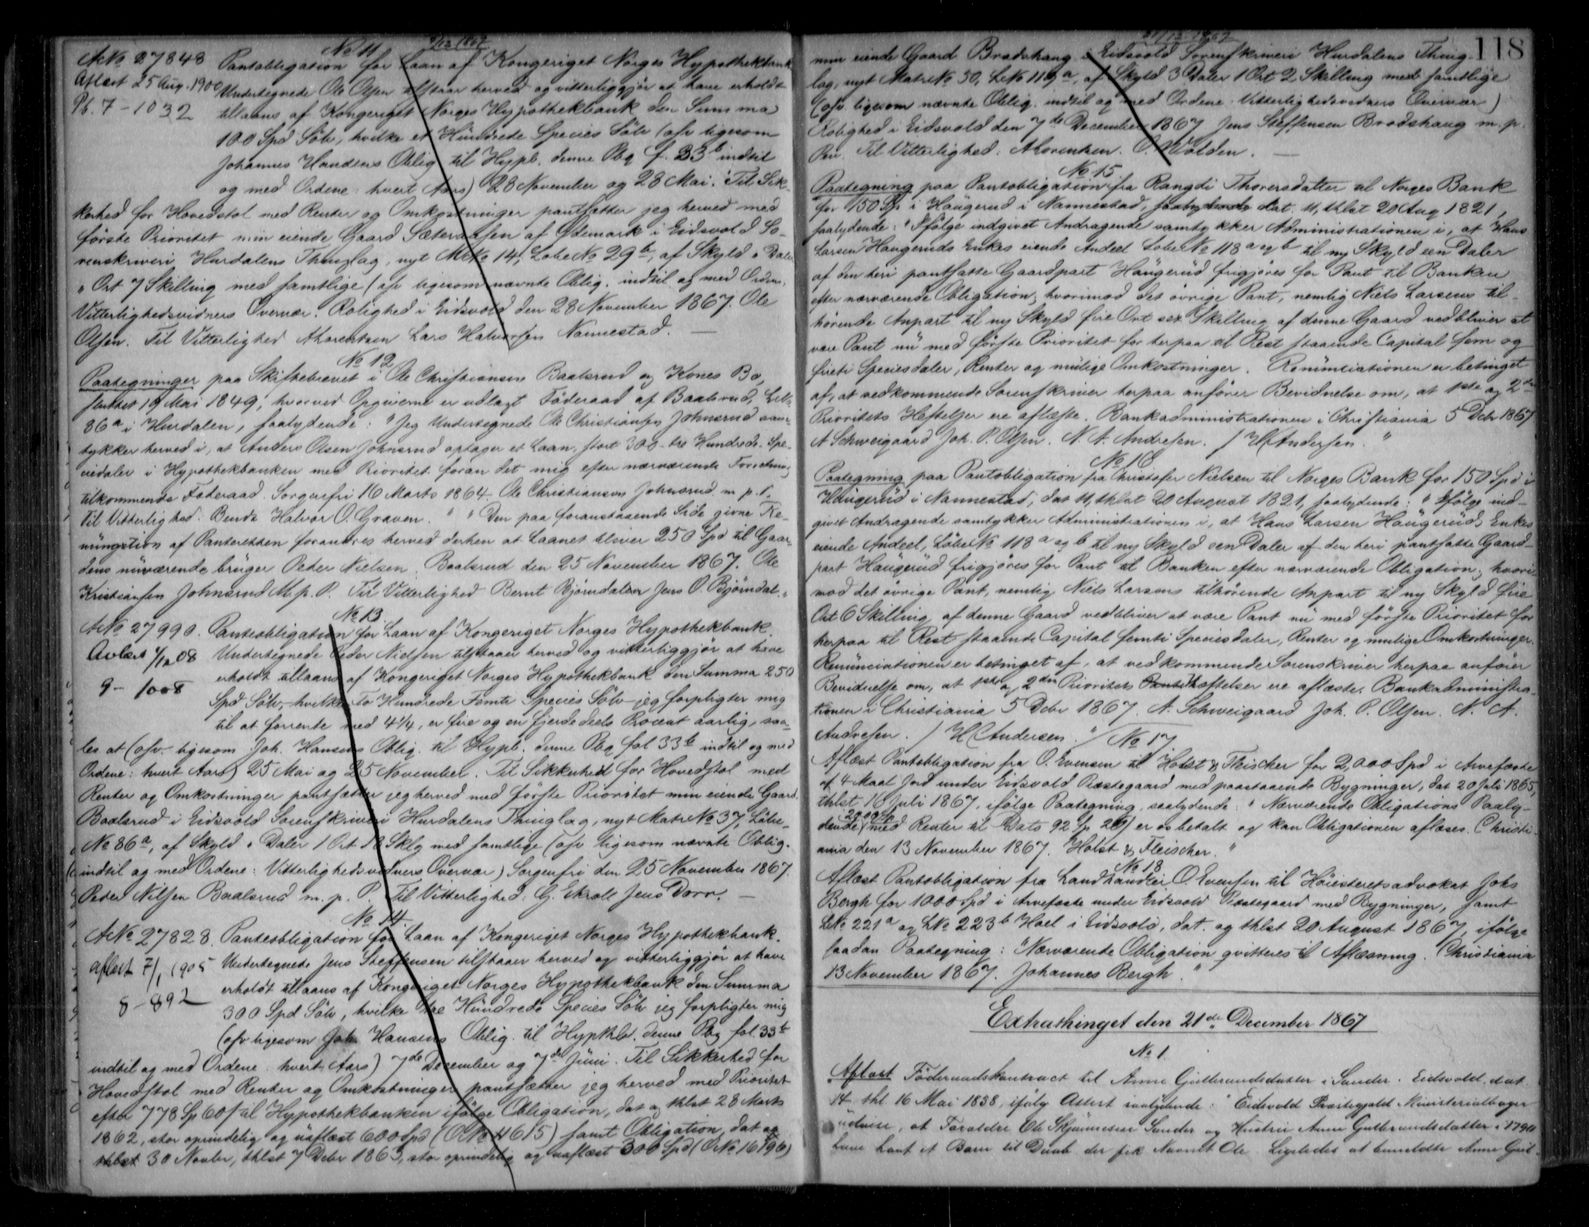 9/12 1867
No 11
A No 27848 Pantobligation for Laan af Kongeriget Norges Hypothekbank
Aflæst 25 Aug. 1900 Undertegnede Ole Olsen tilstaar herved og vitterliggjør at have erholdt
Pb. 7 - 1032 tillaans af Kongeriget Norges Hypothekbank den Summa
100 Spd Sölv, hvilke et Hundrede Species Sölv (ofv. ligesom
Johannes Hansens Oblig. til Hypb. denne Pbg f. 33b indtil
og med Ordene: hvert Aars) 28 November og 28 Mai. Til Sik-
kerhed for Hovedstol med Renter og Omkostninger pantsætter jeg herved med
første Prioritet min eiende Gaard Sæteraasen af Ödemark i Eidsvold So-
renskriveri Hurdalens Thinglag, nyt Mt No 14, Løbe No 29b, af Skyld " Daler
" Ort 7 Skilling med samtlige (ofv. ligesom nævnte Oblig. indtil og med Ordene:
Vitterlighedsvidners Overvær. Rolighed i Eidsvold den 28 November 1867. Ole
Olsen. Til Vitterlighed Lars Halvorsen Nannestad. —
No 12
Paategninger paa Skiftebrevet i Ole Christiansen Baalsrud og Kones Bo,
sluttet 19 Mai 1849, hvorved Opgiverne er udlagt Föderaad af Baalsrud, Lb.
86a i Hurdalen, saalydende: "Jeg Undertegnede Ole Christiansen Johnsrud sam-
tykker herved i, at Anders Olsen Johnsrud optager et Laan, stort 300 tre Hundrede Spe-
ciedaler i Hypothekbanken med Prioritet foran det mig efter nærværende Forretning
tilkommende Føderaad. Sorgenfri 16 Marts 1864 Ole Christiansen Johnsrud m. p. P.
Til Vitterlighed: Halvor O. Graven. " " Den paa foranstaaende Side givne Re-
nunciation af Panteretten forandres herved derhen at Laanet bliver 250 Spd til Gaar-
dens nuværende bruger Peder Nielsen. Baalsrud den 25 November 1867. Ole
Kristiansen Johnsrud M. p. P. Til Vitterlighed Bernt Bjørndalen Jens O. Bjørndal. "
No 13
A No 27990. Panteobligation for Laan af Kongeriget Norges Hypothekbank.
Avlæst 1/12 08 Undertegnede Peder Nielsen tilstaaer herved og vitterliggjør at have
9 - 1008 erholdt tillaans af Kongeriget Norges Hypothekbank den Summa 250
Spd Sölv, hvilke To Hundrede Femti Species Sölv jeg forpligter mig
til at forrente med 4¼, er fire og en fjerdedeels Procent aarlig, saa-
les at (ofv. ligesom Joh. Hansens Oblig. til Hypb. denne Pbg fol 33b indtil og med
Ordene: hvert Aars) 25 Mai og 25 November. Til Sikkerhed for Hovedstol med
Renter og Omkostninger pantsætter jeg herved med første Prioritet min eiende Gaard
Baalsrud i Eidsvold Sorenskriveri Hurdalens Thinglag, nyt Matr No 37, Løbe-
No 86a, af Skyld " Daler 1 Ort Sklg med samtlige (ofv. ligesom nævnte Oblig.
indtil og med Ordene: Vitterlighedsvidners Overvær) Sorgenfri den 25 November 1867.
Peder Nilsen Baalsrud m. p. P. Til Vitterlighed G. Ekroll Jens Dorr. —
No 14.
A No 27828. Panteobligation for Laan af Kongeriget Norges Hypothekbank.
aflæst 7/1 1905 Undertegnede Jens Steffensen tilstaaer herved og vitterliggjør at have
8 - 892 erholdt tillaans af Kongeriget Norges Hypothekbank den Summa
300 Spd Sölv, hvilke Tre Hundrede Species Sölv jeg forpligter mig
(ofv. ligesom Joh. Hansens Oblig. til Hypthb. denne Pbg fol 33b
indtil og med Ordene: hvert Aars) 7de December og 7de Juni. Til Sikkerhed for
Hovedstol med Renter og Omkostninger pantsætter jeg herved med Prioritet
efter 778 Sp 60 s til Hypothekbanken ifølge Obligation, dat og thlst 28 Marts
1862, stor oprindelig og uaflæst 600 Spd (O No 4615) samt Obligation, dat og
30 Novbr, thlst 7 Debr 1863, stor oprindelig og uaflæst 300 Spd (O No 16196)
118
21/12 1867
min eiende Gaard Brodshaug i Eidsvold Sorenskriveri Hurdalens Thing-
lag, nyt Matr No 50, Lb No 119a, af Skyld 3 Daler 1 Ort 2 Skilling med samtlige
(ofv. ligesom nævnte Oblig. indtil og med Ordene: Vitterlighedsvidners Overvær)
Rolighed i Eidsvold den 7de December 1867 Jens Steffensen Brodshaug m. p.
Pen. Til Vitterlighed: AMorentzen. O. Wolden. —
No 15
Paategning paa Pantobligation fra Rangdi Thoresdatter til Norges Bank
for 150 Sp i Haugerud i Nannestad, dat. 11, thlst 20 Aug 1821,
saalydende: "Ifølge indgivet Andragende samtykker Administrationen i, at Hans
Larsen Haugeruds Enkes eiende Andeel Løbe No 118a og b til ny Skyld een Daler
af den heri pantsatte Gaardpart Haugerud frigjøres for Pant til Banken
efter nærværende Obligation, hvorimod det øvrige Pant, nemlig Niels Larsens til-
hørende Anpart til ny Skyld fire Ort sex Skilling af denne Gaard vedbliver at
være Pant nu med første Prioritet for herpaa til Rest staaende Capital fem og
Speciesdaler, Renter og mulige Omkostninger. Renunciationen er betinget
af, at vedkommende Sorenskriver herpaa anfører Bevidnelse om, at 1ste og 2den
Prioritets Heftelser ere aflæste. Bankadministrationen i Christiania 5 Debr 1867
A. Schweigaard Joh. P. Olsen. N. A. Andresen. / H Andersen. "
No 16
Paategning paa Pantobligation fra Christofer Nielsen til Norges Bank for 150 Spd i
Haugerud i Nannestad, dat 11, thlst 20 August 1821, saalydende: "Ifølge ind-
givet Andragende samtykker Administrationen i, at Hans Larsen Haugeruds Enkes
eiende Andeel, Løbe No 118a og b til ny Skyld een Daler af den heri pantsatte Gaard-
part Haugerud frigjøres for Pant til Banken efter nærværende Obligation, hvori-
mod det øvrige Pant, nemlig Niels Larsens tilhørende Anpart til ny Skyld fire
Ort 6 Skilling af denne Gaard vedbliver at være Pant nu med første Prioritet for
herpaa til Rest staaende Capital femti Speciesdaler, Renter og mulige Omkostninger.
Renunciationen er betinget af, at vedkommende Sorenskriver herpaa anfører
Bevidnelse om, at 1ste og 2den Prioritets Hæftelser ere aflæste. Bankadministra-
tionen i Christiania 5 Debr 1867 A. Schweigaard Joh. P. Olsen. N. A.
Andresen. / H Andersen. "/ No 17
Aflæst Pantobligation fra O. Evensen til Holst & Fleischer for 2,000 Spd i Arvefæste
af 4 Maal Jord under Eidsvold Præstegaard med paastaaende Bygninger, dat 20 Juli 1865,
thlst 16 Juli 1867, ifølge Paategning, saalydende: " Nærværende Obligations Paaly-
dende (med Renter til Dato 92 Sp er os betalt og kan Obligationen aflæses. Christi-
ania den 13 November 1867. Holst & Fleischer. "
No 18
Aflæst Pantobligation fra Landhandler O Evensen til Höiesteretsadvokat Johs
Bergh for 1000 Spd i Arvefæste under Eidsvold Præstegaard med Bygninger, samt
Lb No 221a og Lb No 223b Hoel i Eidsvold, dat. og thlst 20 August 1867, ifølge
saadan Paategning: "Nærværende Obligation qvitteres til Aflæsning. Christiania
13 November 1867. Johannes Bergh. "
Extrathinget den 21de December 1867
No 1.
Aflæst Föderaadskontract til Anne Gulbrandsdatter Sander i Eidsvold, dat.
14 thl 16 Mai 1838, ifølg Attest saalydende: " Eidsvold Præstegjelds Ministerialbøger
udvise, at Forældre Ole Sander og Hustru Anne Gulbrandsdatter i 1790
have havt et Barn til Daab der fik Navnet Ole. Ligeledes at anmeldte Anne Gul-